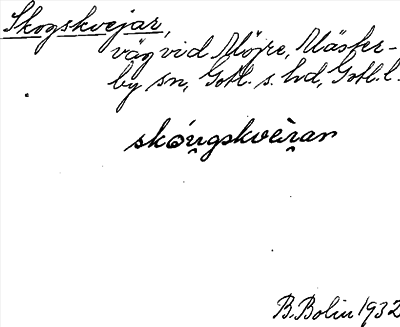 Skogskvejar,
väg vid Möjre, Mäster-
by sn, Gotl. s. hd, Gotl. l.
skóu̯gskvèi̯ar
B. Bolin 1932